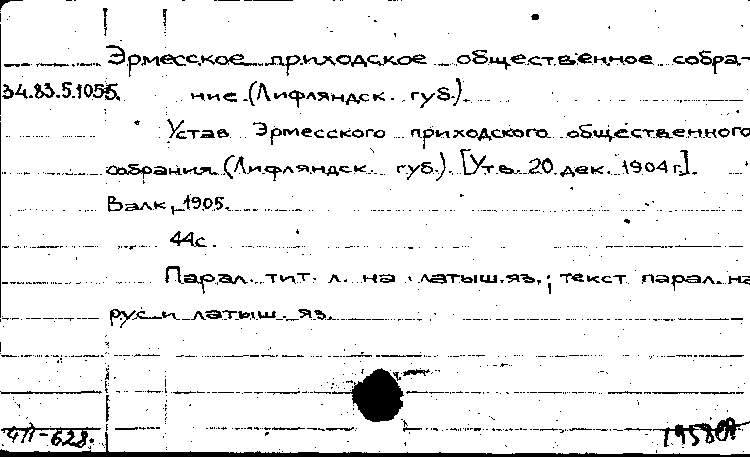 Эрмесское приходское общественное собра-
34.83.5.1055. ние (Лифляндск. губ.).
Устав Эрмесского приходского общественного
собрания (Лифляндск. губ.). [Утв. 20 дек. 1904 г.].
Валк, 1905.
44с.
Парал. тит. л. на латыш. яз.; текст парал. на
рус. и латыш. яз.